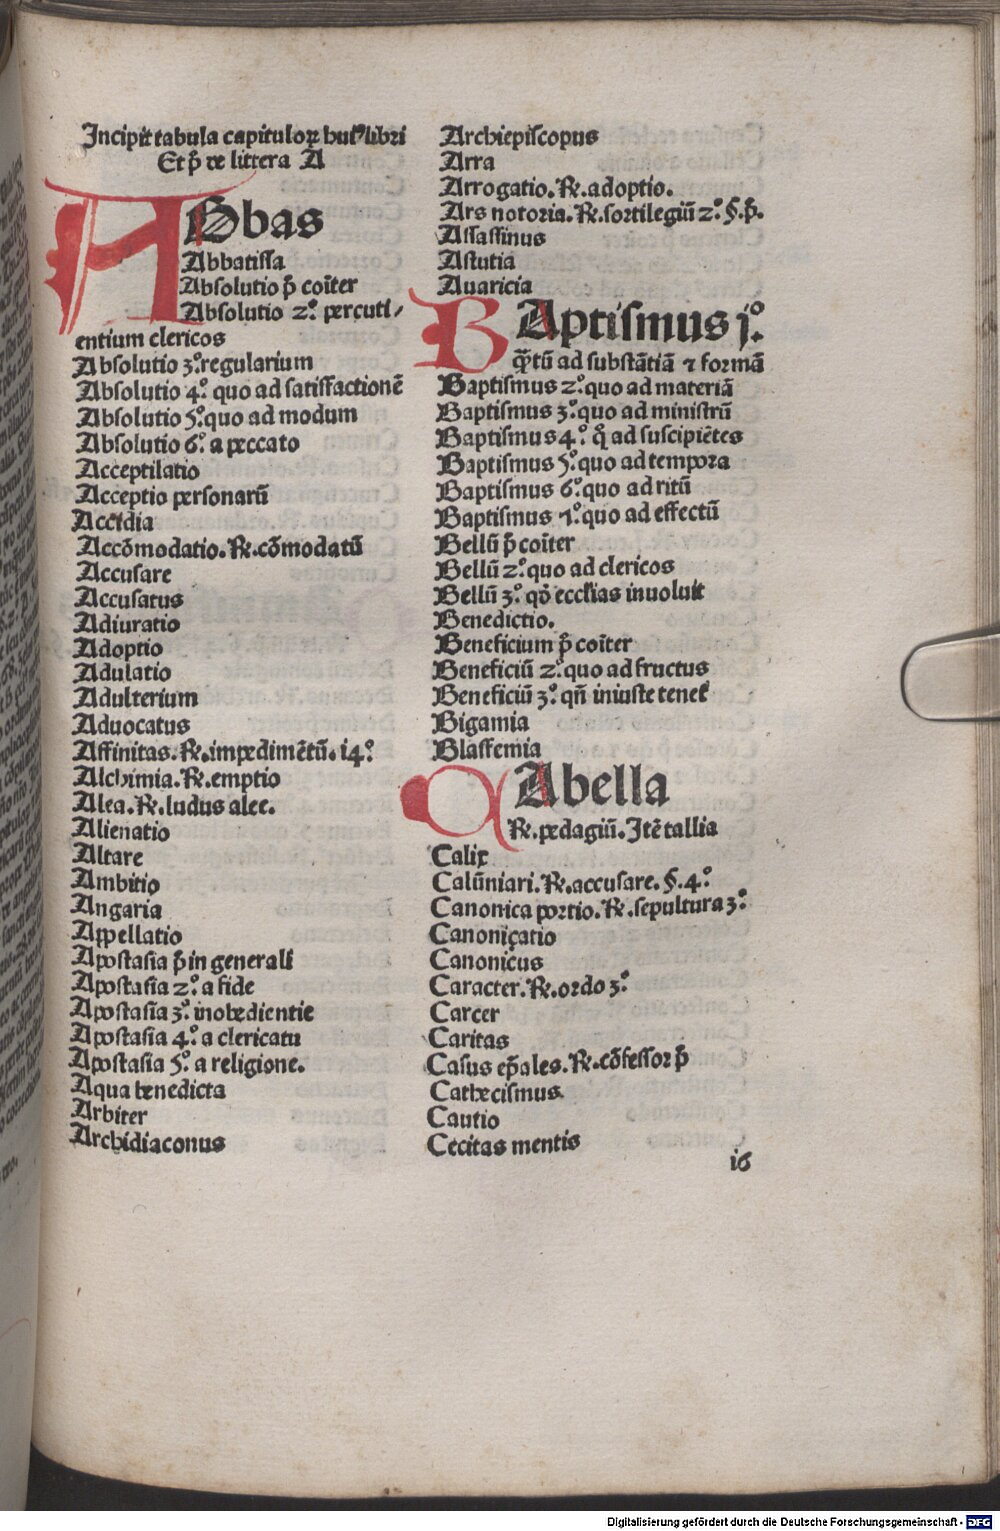 Incipit tabula capituloꝝ huiꝰ libri
Et p̄ de littera A
ABbas
Abbatissa
Absolutio p̄ coīter
Absolutio 2.º percuti/
entium clericos
Absolutio 3.º regularium
Absolutio 4.º quo ad satisfactionē
Absolutio 5.º quo ad modum
Absolutio 6.º a peccato
Acceptilatio
Acceptio personarū
Accidia
Accōmodatio. ℞. cōmodatū
Accusare
Accusatus
Adiuratio
Adoptio
Adulatio
Adulterium
Aduocatus
Affinitas. ℞. impedimētū. i4.º
Alchimia. ℞. emptio
Alea. ℞. ludus alee.
Alienatio
Altare
Ambitio
Angaria
Appellatio
Apostasia p̄ in generali
Apostasia 2.º a fide
Apostasia 3.º inobedientie
Apostasia 4.º a clericatu
Apostasia 5.º a religione.
Aqua benedicta
Arbiter
Archidiaconus
Archiepiscopus
Arra
Arrogatio. ℞. adoptio.
Ars notoria. ℞. sortilegiū 2.º §. p̄.
Assassinus
Astutia
Auaricia
BAptismus j.º
q̄tū ad substātiā ⁊ formā
Baptismus 2.º quo ad materiā
Baptismus 3.º quo ad ministrū
Baptismus 4.º q̊ ad suscipiētes
Baptismus 5.º quo ad tempora
Baptismus 6.º quo ad ritū
Baptismus 7.º quo ad effectū
Bellū p̄ coīter
Bellū 2.º quo ad clericos
Bellū 3.º qn̄ ecclīas inuoluit
Benedictio.
Beneficium p̄ coīter
Beneficiū 2.º quo ad fructus
Beneficiū 3.º qn̄ iniuste tenet᷑
Bigamia
Blasfemia
CAbella
℞. pedagiū. Itē tallia
Calix
Calūniari. ℞. accusare. §. 4.º
Canonica portio. ℞. sepultura 3.º
Canonicatio
Canonicus
Caracter. ℞. ordo 3.º
Carcer
Caritas
Casus ep̄ales. ℞. cōfessor p̄
Cathecismus
Cautio
Cecitas mentis
i6
Digitalisierung gefördert durch die Deutsche Forschungsgemeinschaft - DFG